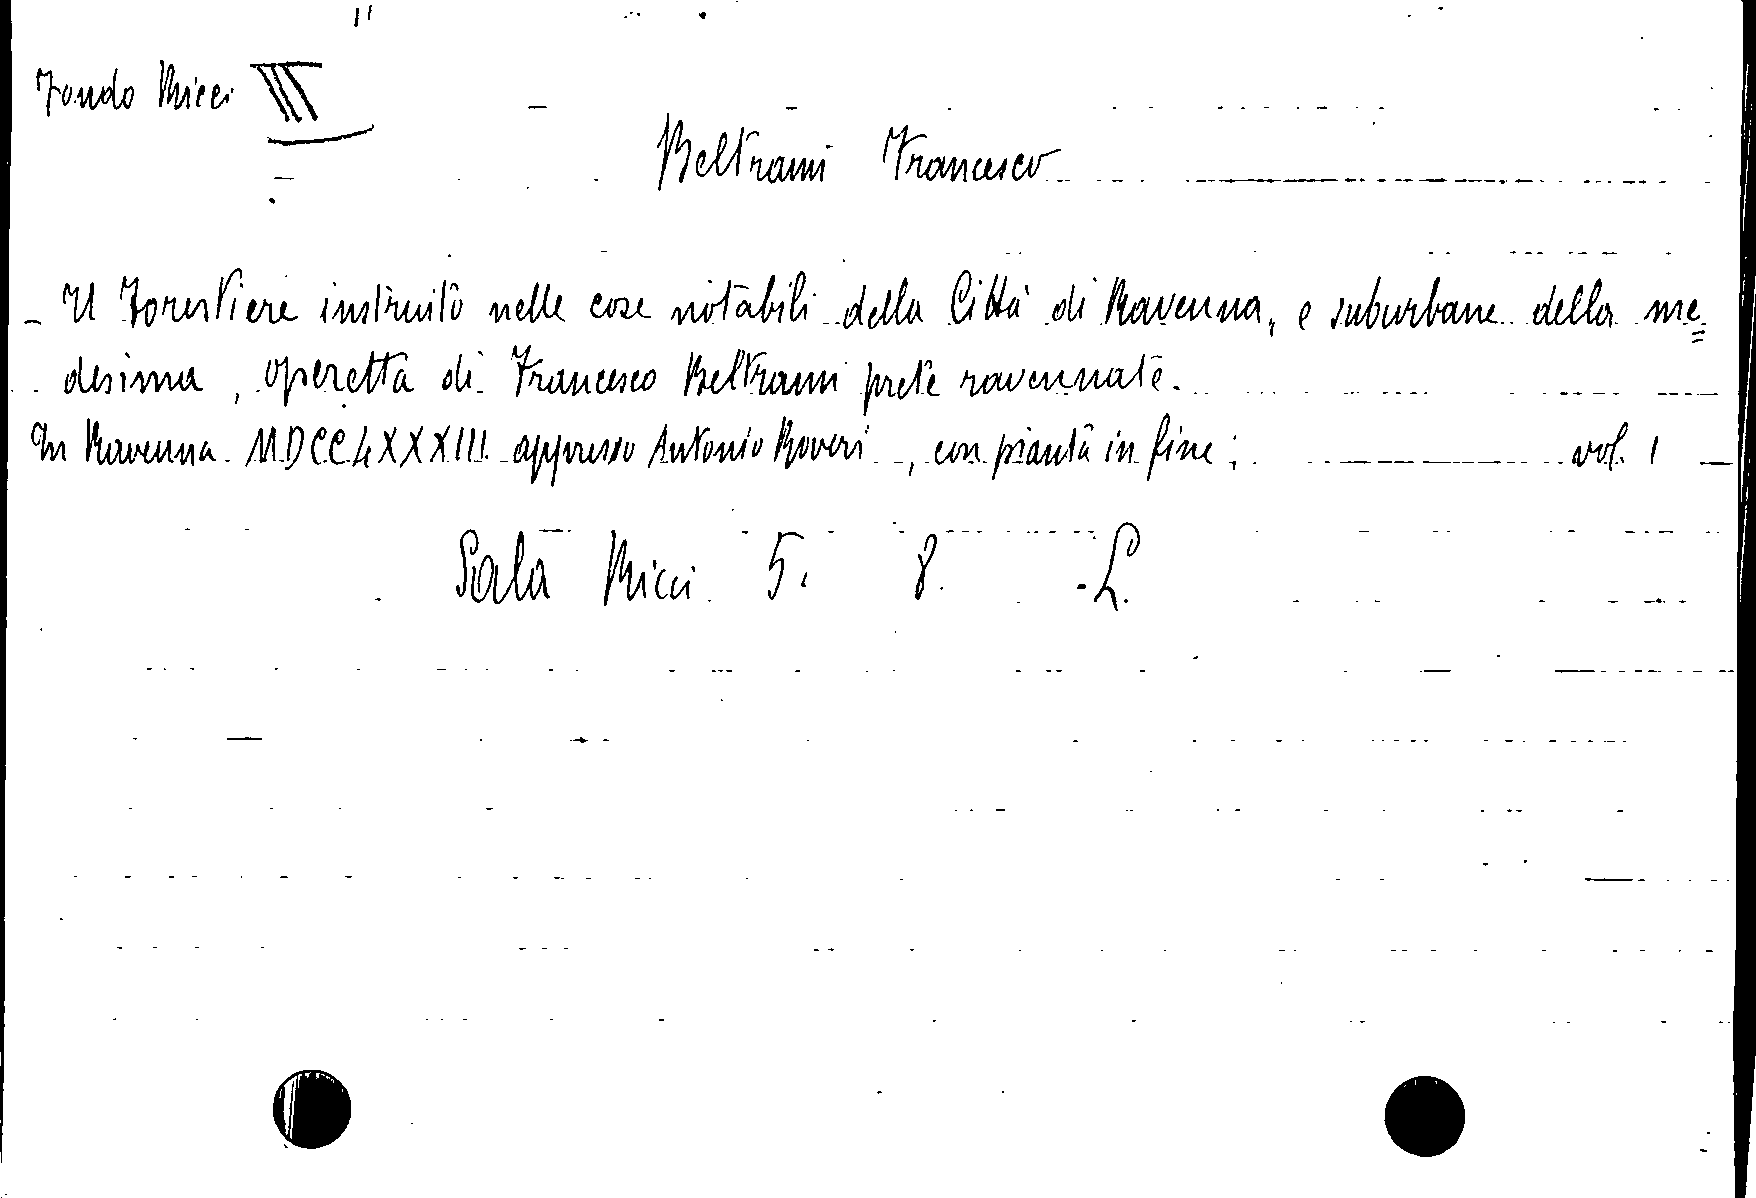 Fondo Ricci
Beltrami Francesco
- Il Forestiere instruito nelle cose notabili della Città di Ravenna, e suburbane della me=
desima, operetta di Francesco Beltrami prete ravennate.
In Ravenna MDCCLXXXIII appresso Antonio Roveri, con pianta in fine; vol. 1
Sala Ricci 5. 8. L.